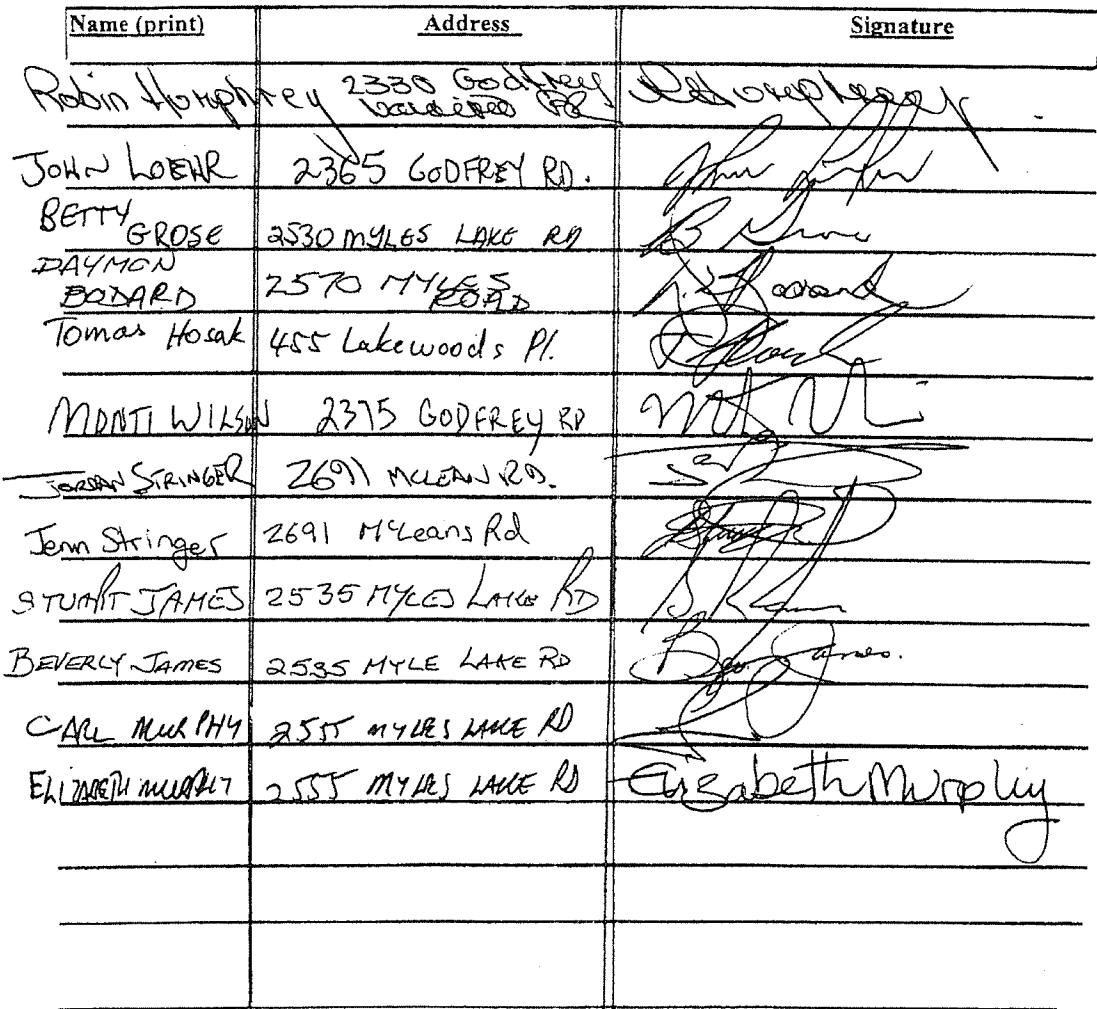 Name (print) Address Signature
Robin Humphrey 2330 Godfrey
JOHN LOEHR 2365 GODFREY RD.
BETTY
GROSE 2530 MYLES LAKE RD
DAYMON
BODARD 2570 MYLES
ROAD
Tomas Hosak 455 Lakewoods Pl.
MONTI WILSON 2375 GODFREY RD
JORDAN STRINGER 2691 MCLEAN RD.
Jenn Stringer 2691 McLeans Rd
STUART JAMES 2535 MYLES LAKE RD
BEVERLY JAMES 2535 MYLE LAKE RD Bev James.
CARL MURPHY 2555 MYLES LAKE RD
ELIZABETH MURPHY 2555 MYLES LAKE RD Elizabeth Murphy